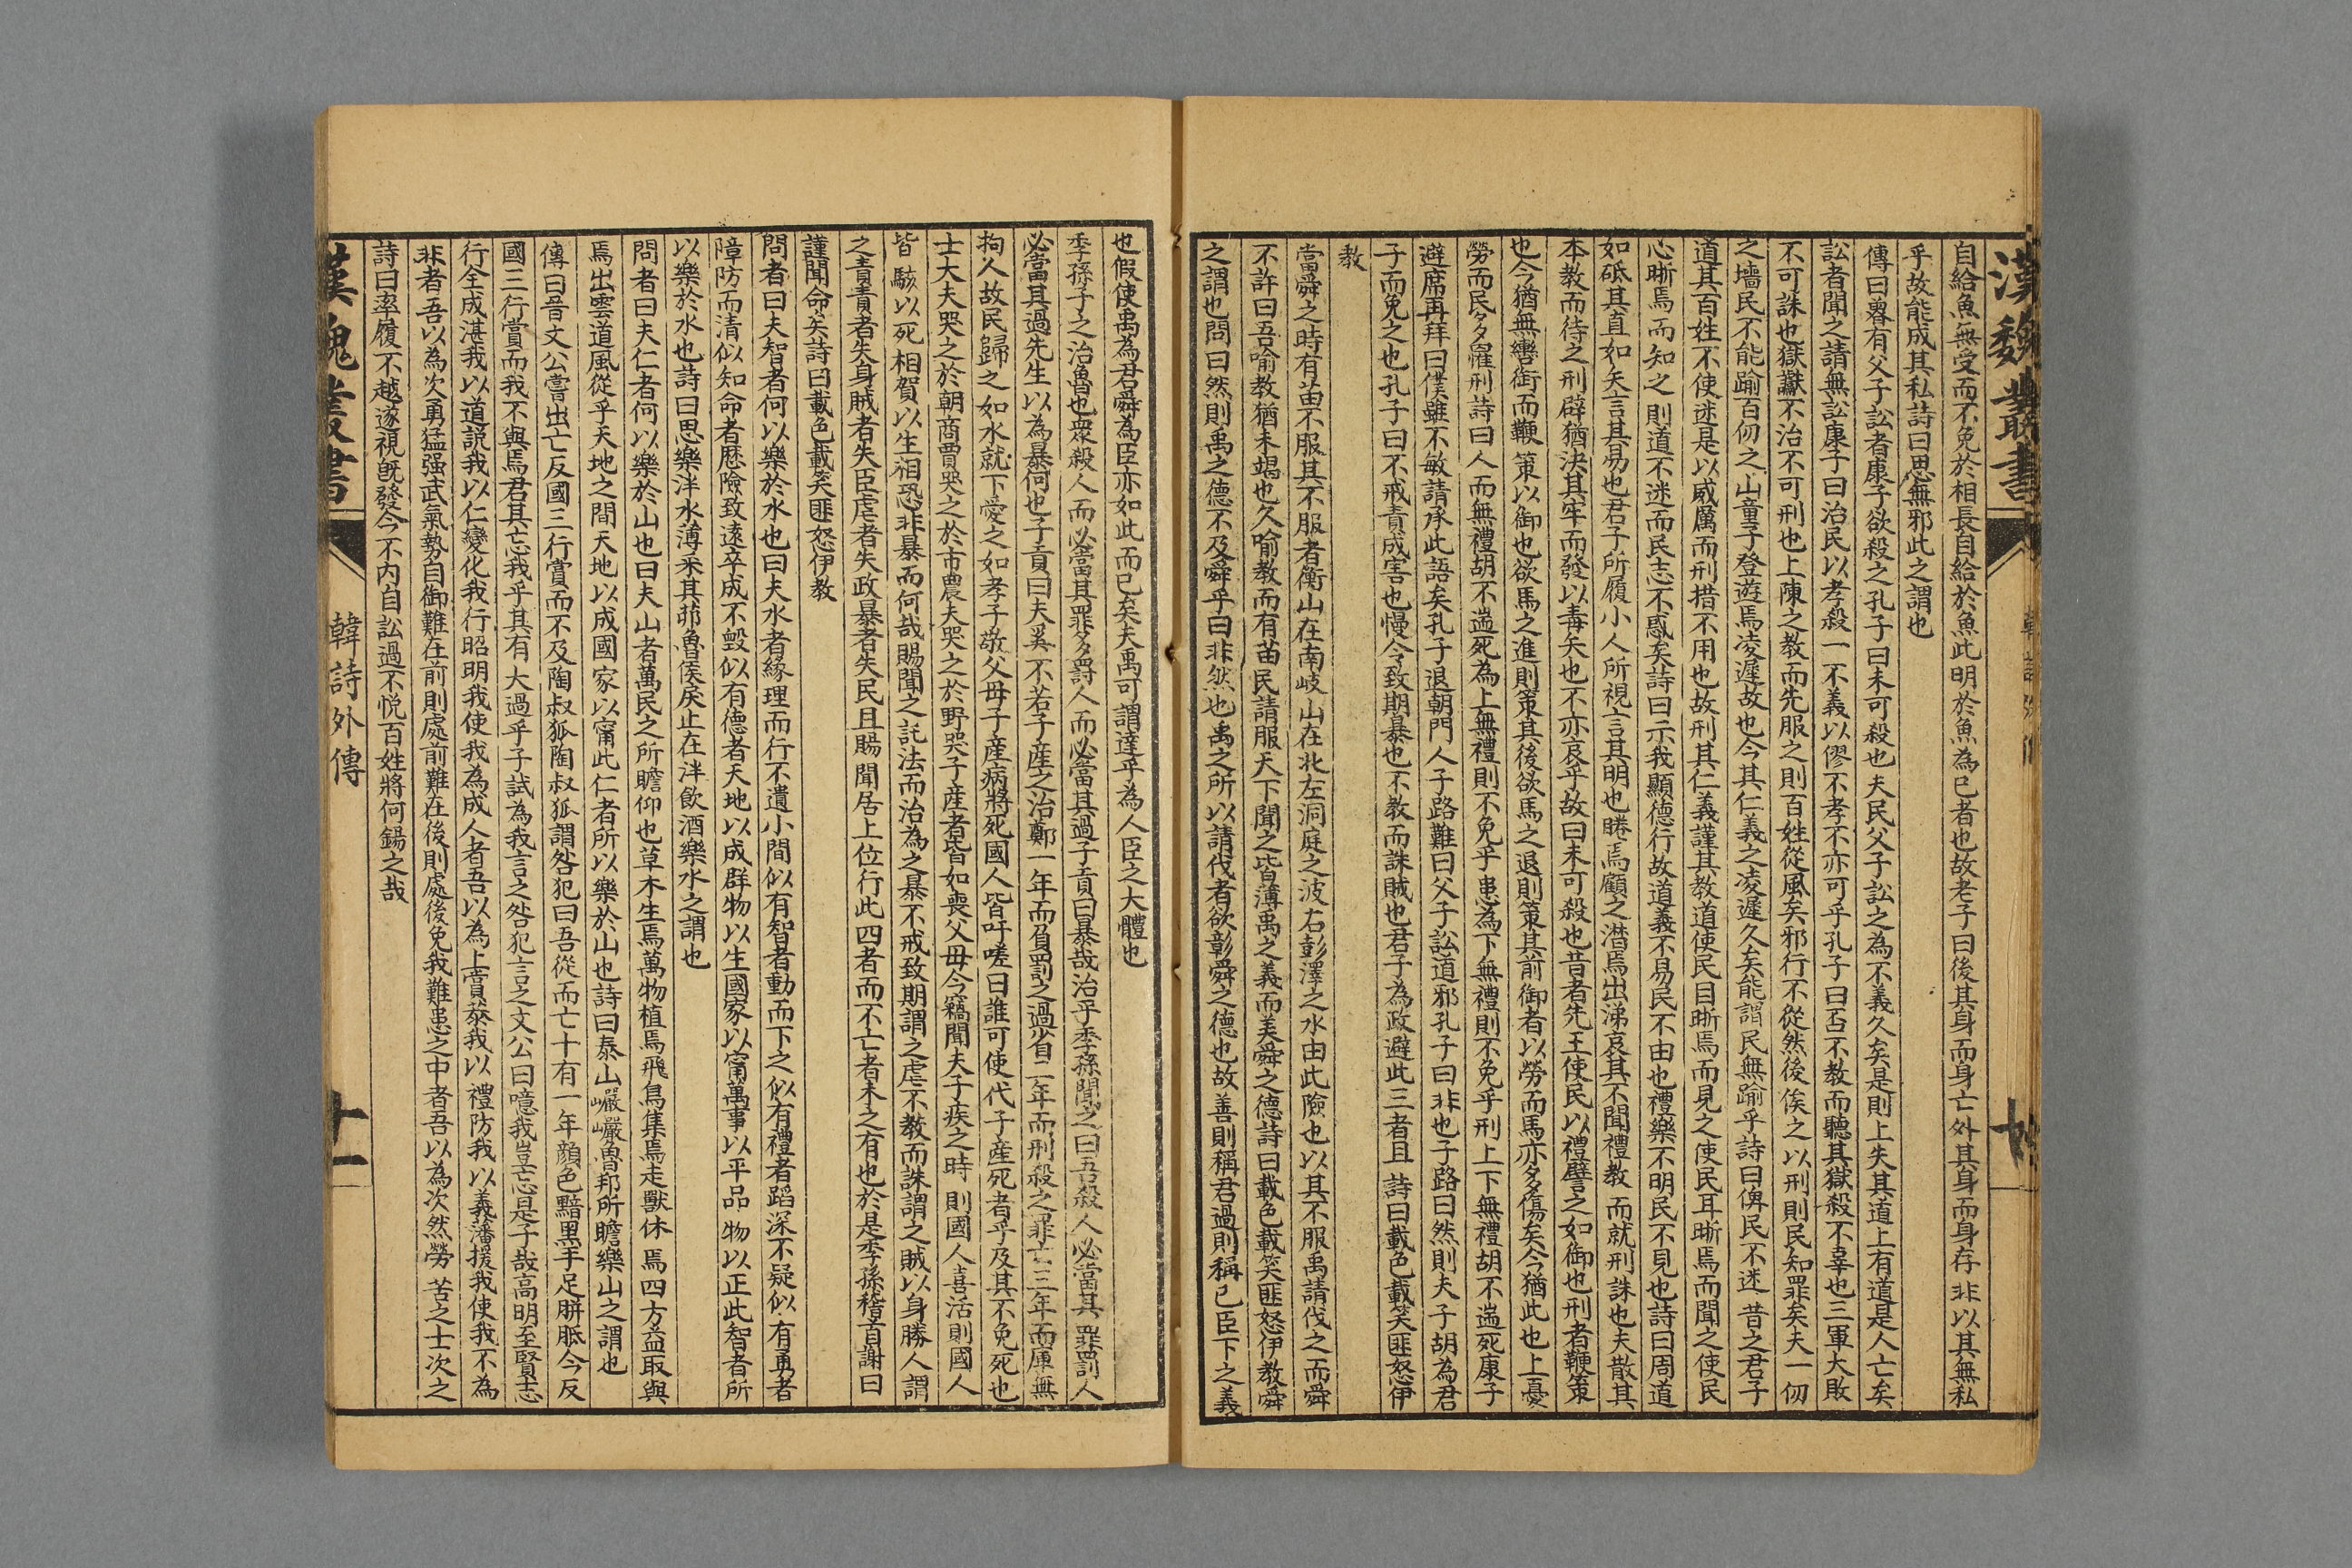 漢魏叢書
自給魚無受而不免於相長自給於魚此明於魚為已者也故老子曰後其身而身亡外其身而身存非以其無私
乎故能成其私詩曰思無邪此之謂也
傳曰魯有父子訟者康子欲殺之孔子曰未可殺也夫民父子訟之為不義久矣是則上失其道上有道是人亡矣
訟者聞之請無訟康子曰治民以孝殺一不義以僇不孝不亦可乎孔子曰否不教而聽其獄殺不辜也三軍大敗
不可誅也獄讞不治不可刑也上陳之教而先服之則百姓從風矣邪行不從然後俟之以刑則民知罪矣夫一仞
之墻民不能踰百仞之山童子登遊焉凌遲故也今其仁義之凌遲久矣能謂民無踰乎詩曰俾民不迷昔之君子
道其百姓不使迷是以威厲而刑措不用也故刑其仁義謹其教道使民目晰焉而見之使民耳晰焉而聞之使民
心晰焉而知之則道不迷而民志不惑矣詩曰示我顯德行故道義不易民不由也禮樂不明民不見也詩曰周道
如砥其直如矢言其易也君子所履小人所視言其明也睠焉顧之潸焉出涕哀其不聞禮教而就刑誅也夫散其
本教而待之刑辟猶決其牢而發以毒矢也不亦哀乎故曰未可殺也昔者先王使民以禮譬之如御也刑者鞭策
也今猶無轡銜而鞭策以御也欲馬之進則策其後欲馬之退則策其前御者以勞而馬亦多傷矣今猶此也上憂
勞而民多罹刑詩曰人而無禮胡不遄死為上無禮則不免乎患為下無禮則不免乎刑上下無禮胡不遄死康子
避席再拜曰僕雖不敏請承此語矣孔子退朝門人子路難曰父子訟道邪孔子曰非也子路曰然則夫子胡為君
子而免之也孔子曰不戒責成害也慢令致期暴也不教而誅賊也君子為政避此三者且詩曰載色載笑匪怒伊
教
當舜之時有苗不服其不服者衡山在南岐山在北左洞庭之波右彭澤之水由此險也以其不服禹請伐之而舜
不許曰吾喻教猶未竭也久喻教而有苗民請服天下聞之皆薄禹之義而美舜之德詩曰載色載笑匪怒伊教舜
之謂也問曰然則禹之德不及舜乎曰非然也禹之所以請伐者欲彰舜之德也故善則稱君過則稱已臣下之義
也假使禹為君舜為臣亦如此而已矣夫禹可謂達乎為人臣之大體也
季孫子之治魯也衆殺人而必當其罪多罰人而必當其過子貢曰暴哉治乎季孫聞之曰吾殺人必當其罪罰人
必當其過先生以為暴何也子貢曰夫奚不若子產之治鄭一年而負罰之過省二年而刑殺之罪亡三年而庫無
拘人故民歸之如水就下愛之如孝子敬父母子產病將死國人皆吁嗟曰誰可使代子產死者乎及其不免死也
士大夫哭之於朝商賈哭之於市農夫哭之於野哭子產者皆如喪父母今竊聞夫子疾之時則國人喜活則國人
皆駭以死相賀以生相恐非暴而何哉賜聞之託法而治為之暴不戒致期謂之虐不教而誅謂之賊以身勝人謂
之責責者失身賊者失臣虐者失政暴者失民且賜聞居上位行此四者而不亡者未之有也於是季孫稽首謝曰
謹聞命矣詩曰載色載笑匪怒伊教
問者曰夫智者何以樂於水也曰夫水者緣理而行不遺小間似有智者動而下之似有禮者蹈深不疑似有勇者
障防而清似知命者歷險致遠卒成不毀似有德者天地以成群物以生國家以甯萬事以平品物以正此智者所
以樂於水也詩曰思樂泮水薄采其茆魯侯戾止在泮飲酒樂水之謂也
問者曰夫仁者何以樂於山也曰夫山者萬民之所瞻仰也草木生焉萬物植焉飛鳥集焉走獸休焉四方益取與
焉出雲道風從乎天地之間天地以成國家以甯此仁者所以樂於山也詩曰泰山巖巖魯邦所瞻樂山之謂也
傳曰晉文公嘗出亡反國三行賞而不及陶叔狐陶叔狐謂咎犯曰吾從而亡十有一年顏色黯黑手足胼胝今反
國三行賞而我不與焉君其忘我乎其有大過乎子試為我言之咎犯言之文公曰噫我豈忘是子哉高明至賢志
行全成湛我以道說我以仁變化我行昭明我使我為成人者吾以為上賞恭我以禮防我以義藩援我使我不為
非者吾以為次勇猛强武氣勢自御難在前則處前難在後則處後免我難患之中者吾以為次然勞苦之士次之
詩曰率履不越遂視旣發今不內自訟過不悅百姓將何錫之哉
漢魏叢書
韓詩外傳
十一